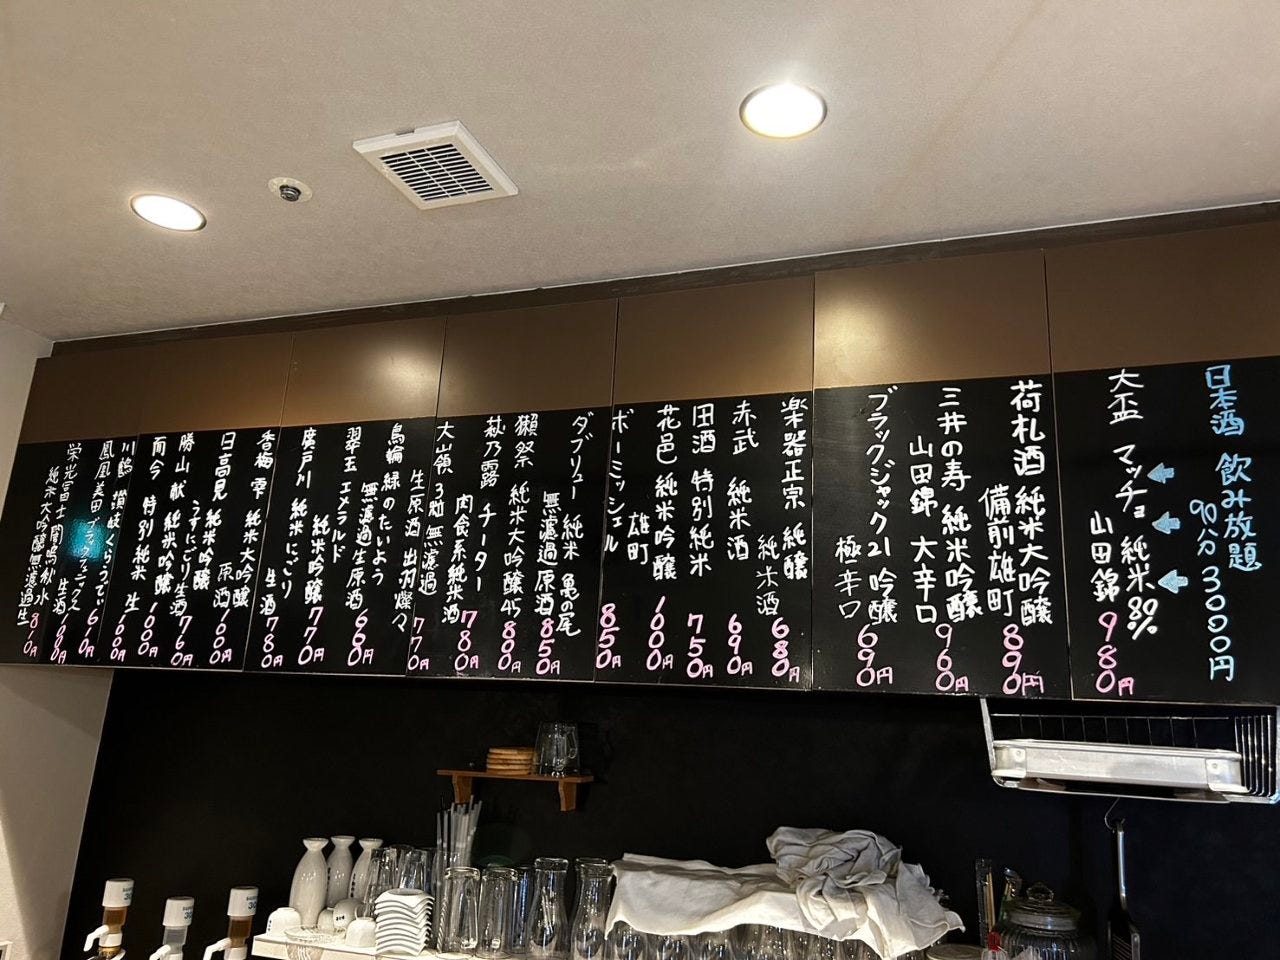 日本酒 飲み放題
90分 3000円
大盃 マッチョ 純米80%
山田錦 980円
荷札酒 純米大吟醸
備前雄町 890円
三井の寿 純米吟醸
山田錦 大辛口 960円
ブラックジャック21 吟醸
極辛口 690円
楽器正宗 純醸
純米酒 680円
赤武 純米酒 690円
田酒 特別純米 750円
花邑 純米吟醸
雄町 1000円
ボーミッシェル 850円
ダブリュー 純米 亀の尾
無濾過原酒 850円
獺祭 純米大吟醸45 800円
萩乃露 チーター
肉食系純米酒 780円
大嶺 3粒 無濾過
生原酒 出羽燦々 770円
鳥輪 緑のたいよう
無濾過生原酒 660円
翠玉 エメラルド
純米吟醸 770円
廣戸川 純米にごり
生酒 780円
香梅 雫 純米大吟醸
原酒 1000円
日高見 純米吟醸
うすにごり生酒 760円
勝山 献 純米吟醸 1000円
而今 特別純米 1000円
川鶴 讃岐くらうでぃ 610円
鳳凰美田 ブラックフェニックス
生酒 1000円
栄光冨士 闇鳴秋水
純米大吟醸無濾過生 810円